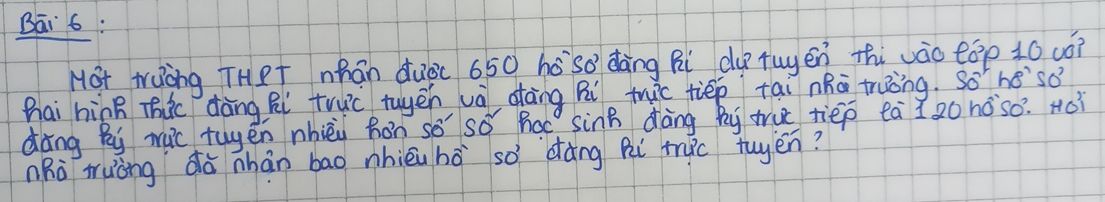 Bài 6:
Một trường THPT nhận được 650 hồ sơ đăng kí dự tuyển thi vào lớp 10 với
hai hình thức đăng kí trực tuyến và đăng kí trực tiếp tại nhà trường. Số hồ sơ
đăng ký trực tuyến nhiều hơn số số học sinh đăng ký trực tiếp là 120 hồ sơ. Hỏi
nhà trường đã nhận bao nhiêu hồ sơ đăng kí trực tuyến?